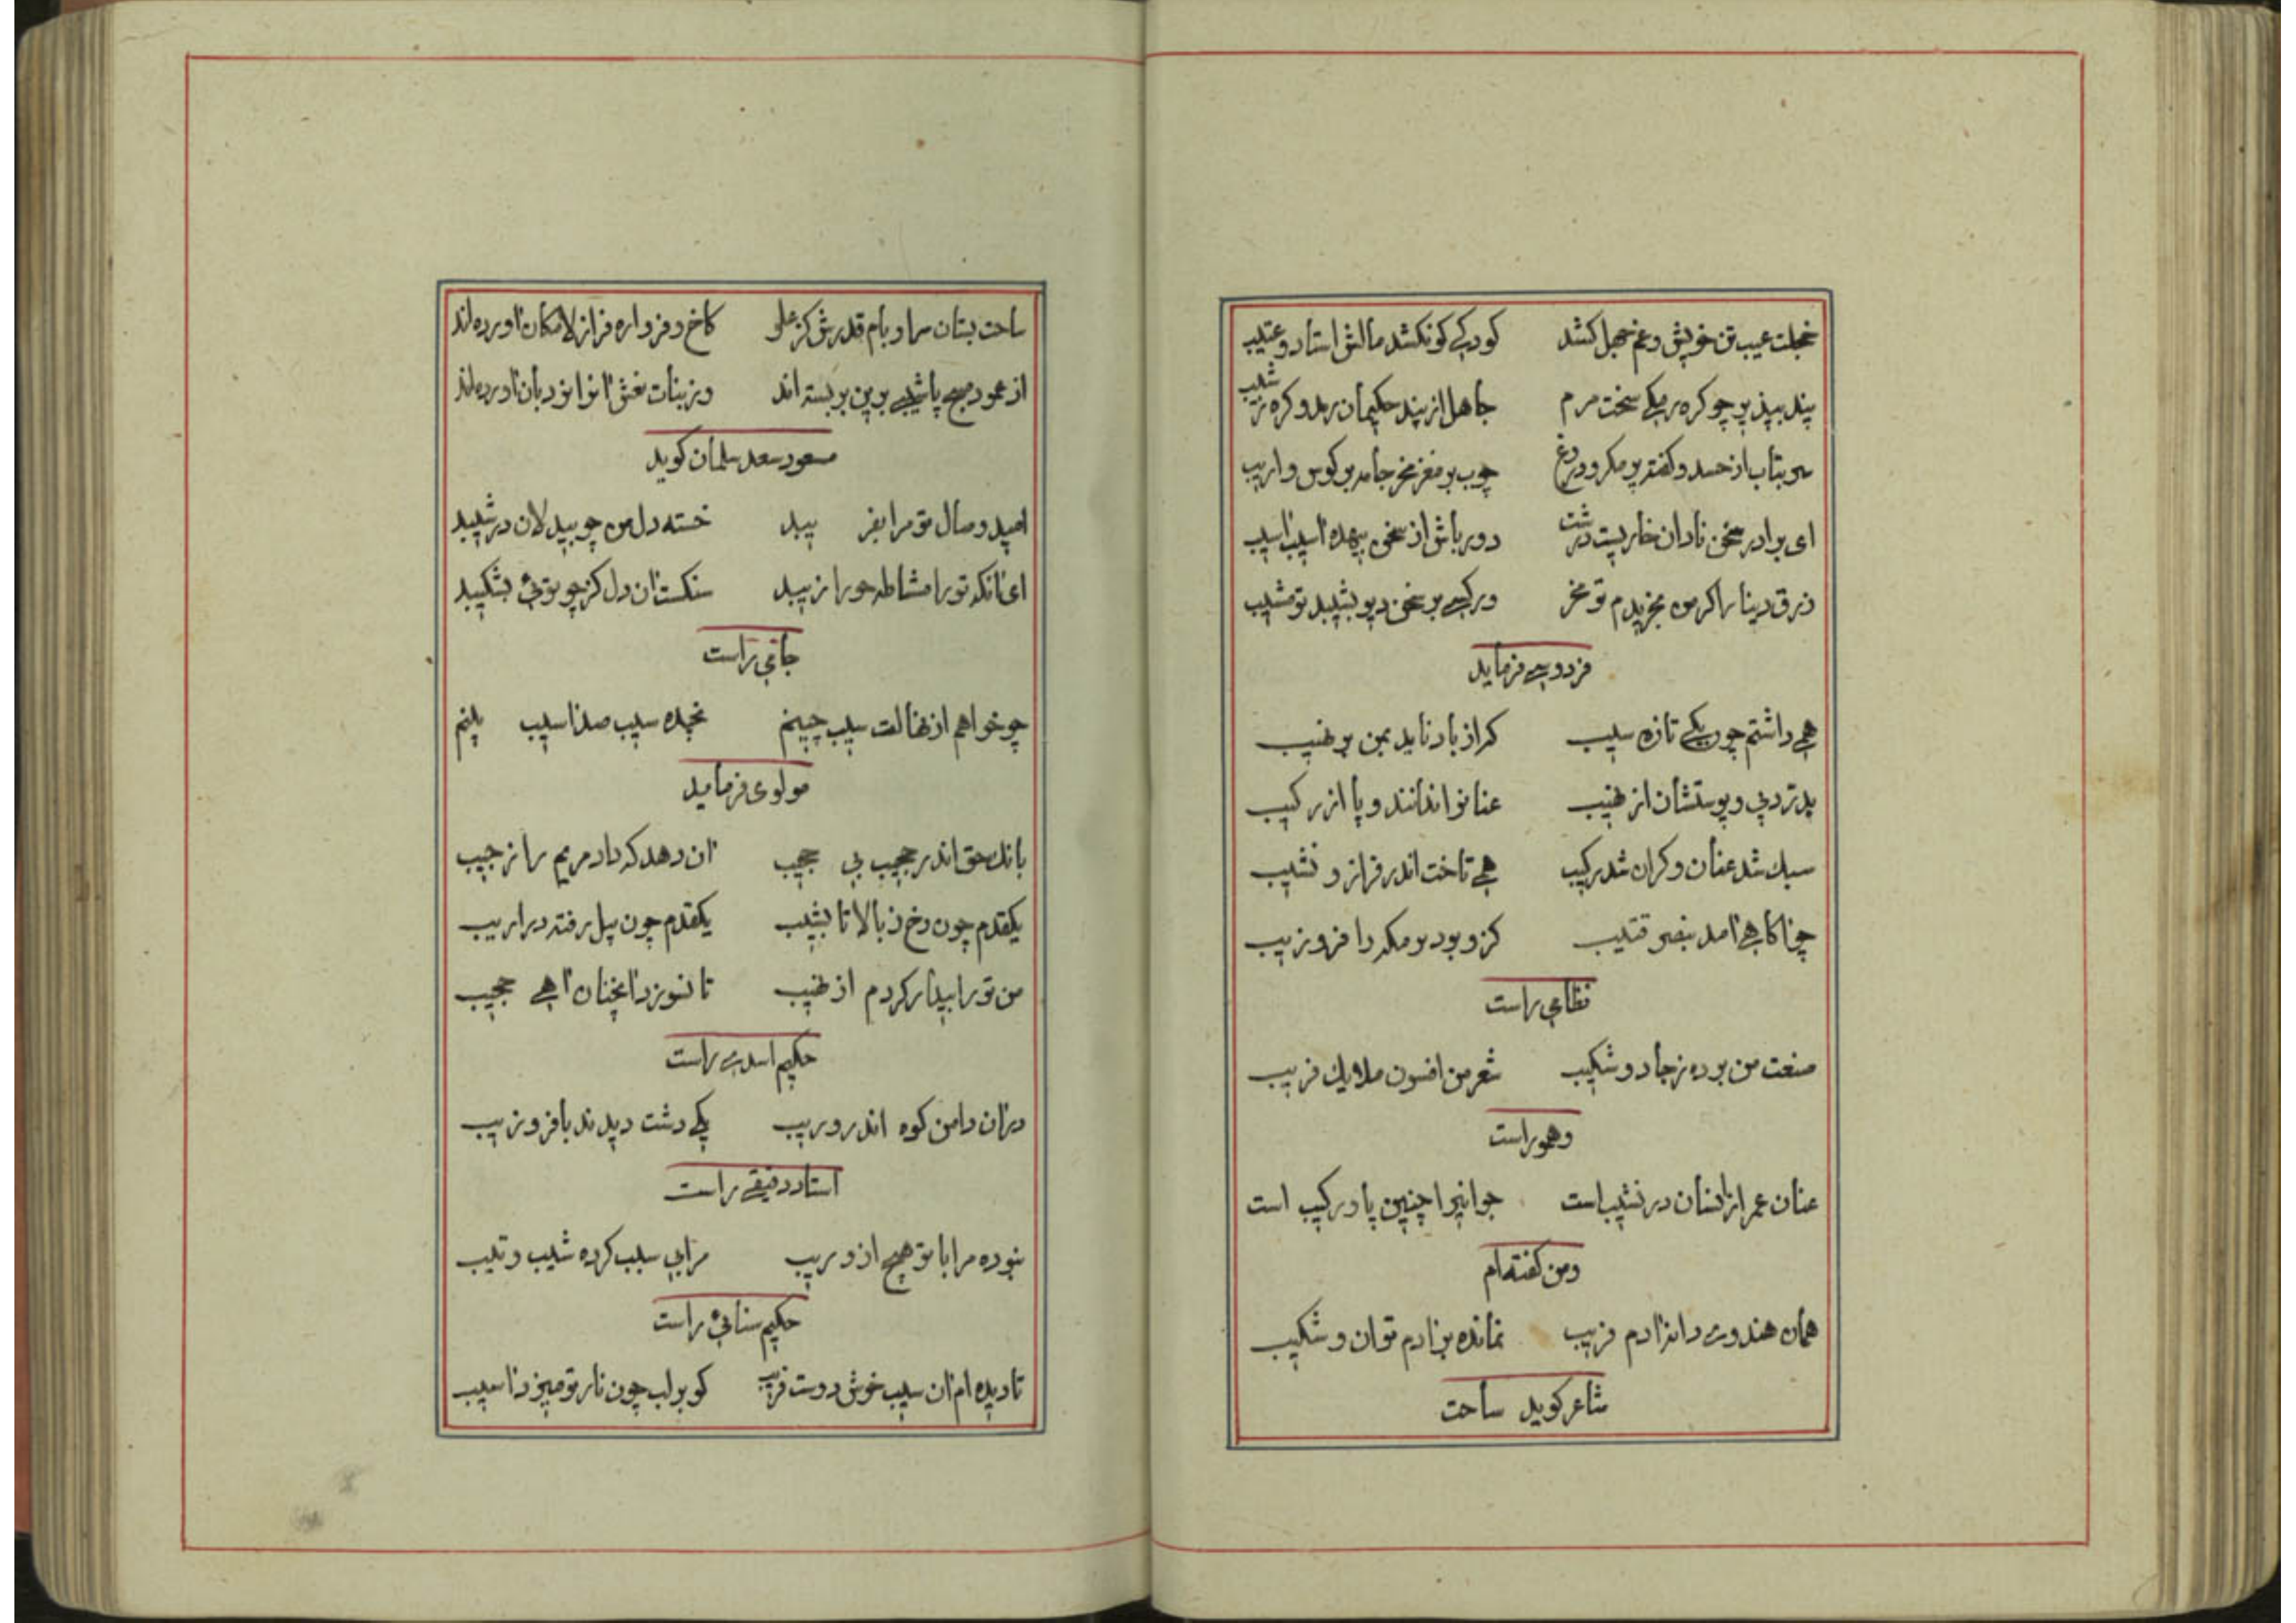 خجلت عیب تن خویش و غم جهل کشد کودکی کو نکشد مالش استاد و عتیب
پند بپذیر چو کره رمکی سخت مرم جاهل از پند حکیمان رمد و کره ز شیب
سر بتاب از حسد و کفته پر مکر و دروغ چوب بر مغز مخر جامه پر کوس و اریب
ای برادر سخن نادان خاریست درشت دور باش از سخن بیهده آسیب آسیب
زرق دینا را کر من بخریدم تو مخر ور کسی بر سخن دیو بشیبد تو مشیب
فردوسی فرماید
همی داشتم چون یکی تازه سیب که از باد ناید بمن بر نهیب
بدرد پی و پوستشان از نهیب عنانرا ندانند و پا از رکیب
سبک شد عنان و کران شد رکیب همی تاخت اندر فراز و نشیب
چو آکاهی آمد بنصر قتیب کزو بود بر مکه را فر و زیب
نظامی راست
صنعت من برده ز جادو شکیب شعر من افسون ملایک فریب
و همو راست
عنان عمر ازانسان در نشیب است جوانیرا چنین پا در رکیب است
و من کفته ام
همان هندوی دانه آدم فریب نمانده بزادم توان و شکیب
شاعر کوید ساحت
ساحت بستان سرا و بام قدرش کز علو کاخ و فرواره فراز لامکان آورده اند
از عمود صبح پاشیبی برین بر بسته اند وز بنات نعش آنرا نردبان آورده اند
مسعود سعد سلمان کوید
امید وصال تو مرا بفریبد خسته دل من چو بیدلان درشیبد
ای آنکه تو را مشاطه حورا زیبد سنکست آن دل کز چو توئی بشکیبد
جامی راست
چو خواهم از نهالت سیب چینم نچیده سیب صد آسیب بینم
مولوی فرماید
بانک حق اندر حجیب بی حجیب آن دهد که داد مریم را ز جیب
یکقدم چون رخ ز بالا تا بشیب یکقدم چون پیل رفته در اریب
من تو را بیدار کردم از نهیب تا نسوزد آنچنان آهی حجیب
حکیم اسدی راست
دران دامن کوه اندر وریب یکی دشت دیدند با فر و زیب
استاد دقیقی راست
نبوده مرا با تو هیچ از وریب مرا بی سبب کرده شیب و تیب
حکیم سنائی راست
تا دیده ام آن سیب خوش دوست فریب کو بر لب چون نار تو میزد آسیب